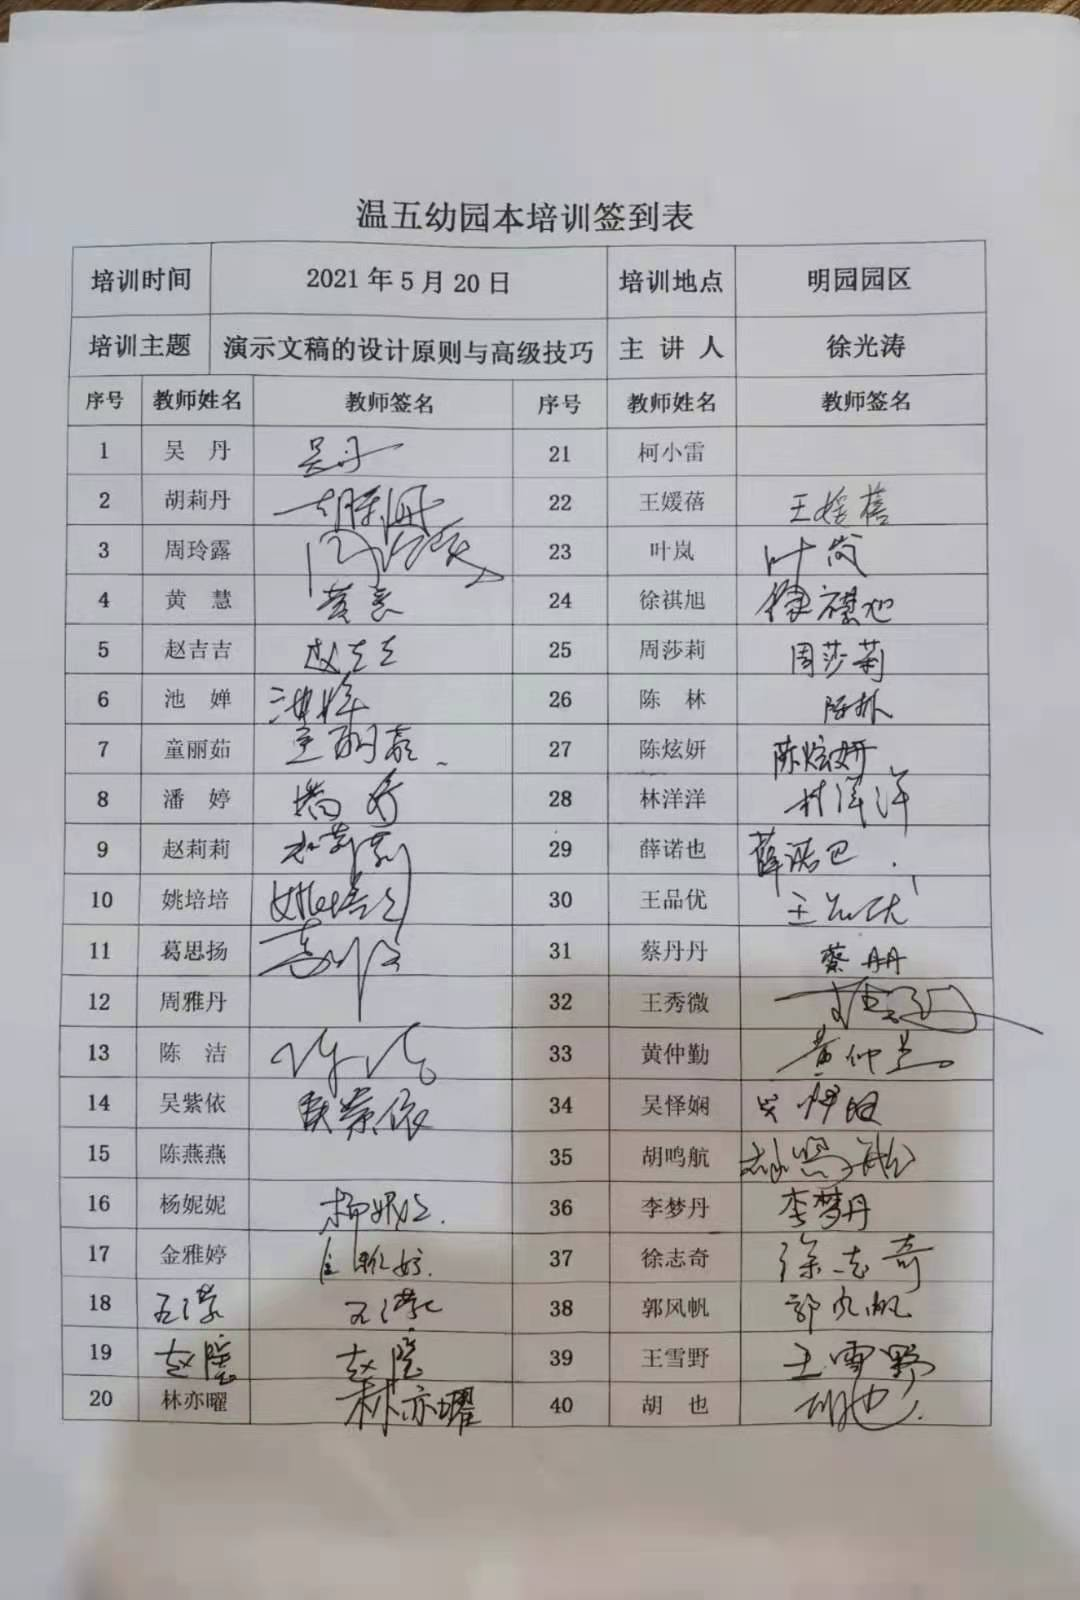 温五幼园本培训签到表
培训时间 2021年5月20日 培训地点 明园园区
培训主题 演示文稿的设计原则与高级技巧 主讲人 徐光涛
序号 教师姓名 教师签名 序号 教师姓名 教师签名
1 吴丹 吴丹 21 柯小雷
2 胡莉丹 22 王媛蓓 王媛蓓
3 周玲露 23 叶岚 叶岚
4 黄慧 黄慧 24 徐祺旭 徐祺旭
5 赵吉吉 赵吉吉 25 周莎莉 周莎莉
6 池婵 池婵 26 陈林 陈林
7 童丽茹 童丽茹 27 陈炫妍 陈炫妍
8 潘婷 潘婷 28 林洋洋 林洋洋
9 赵莉莉 赵莉莉 29 薛诺也 薛诺也
10 姚培培 姚培培 30 王品优 王品优
11 葛思扬 31 蔡丹丹 蔡丹丹
12 周雅丹 32 王秀微
13 陈洁 陈洁 33 黄仲勤 黄仲勤
14 吴紫依 吴紫依 34 吴怿娴 吴怿娴
15 陈燕燕 35 胡鸣航 胡鸣航
16 杨妮妮 杨妮妮 36 李梦丹 李梦丹
17 金雅婷 金雅婷 37 徐志奇 徐志奇
18 38 郭风帆 郭风帆
19 39 王雪野 王雪野
20 林亦曜 林亦曜 40 胡也 胡也